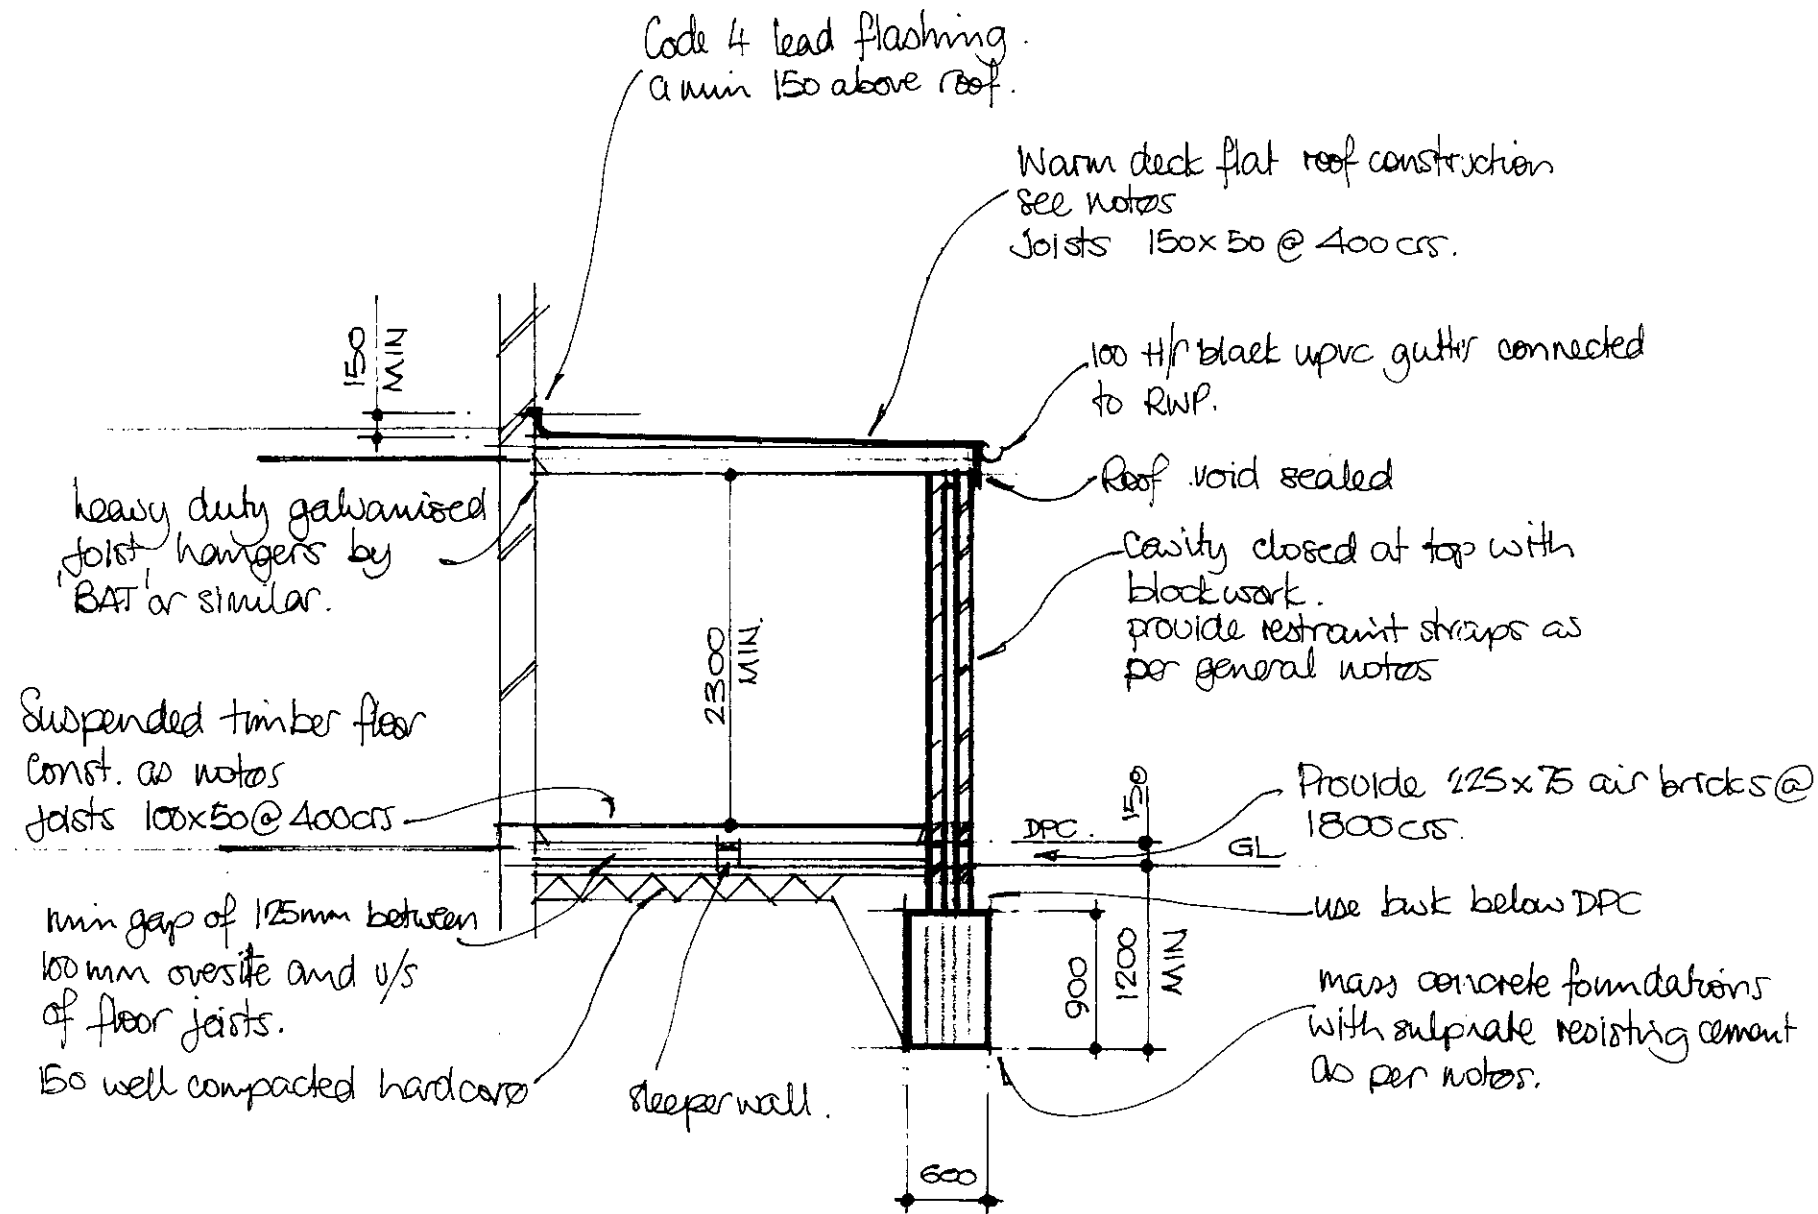 Code 4 lead flashing.
a min 150 above roof.
Warm deck flat roof construction
see notes
Joists 150x50 @ 400 crs.
150
MIN
100 H/r black upvc gutter connected
to RWP.
Roof void sealed
heavy duty galvanised
joist hangers by
'BAT' or similar.
Cavity closed at top with
blockwork.
provide restraint straps as
per general notes
2300
MIN.
Suspended timber floor
const. as notes
joists 100x50@400crs
150
Provide 225x75 air bricks @
1800 crs.
DPC.
GL
min gap of 125mm between
100mm oversite and u/s
of floor joists.
150 well compacted hardcore
sleeper wall.
use bwk below DPC
900
1200
MIN
mass concrete foundations
with sulphate resisting cement
as per notes.
600